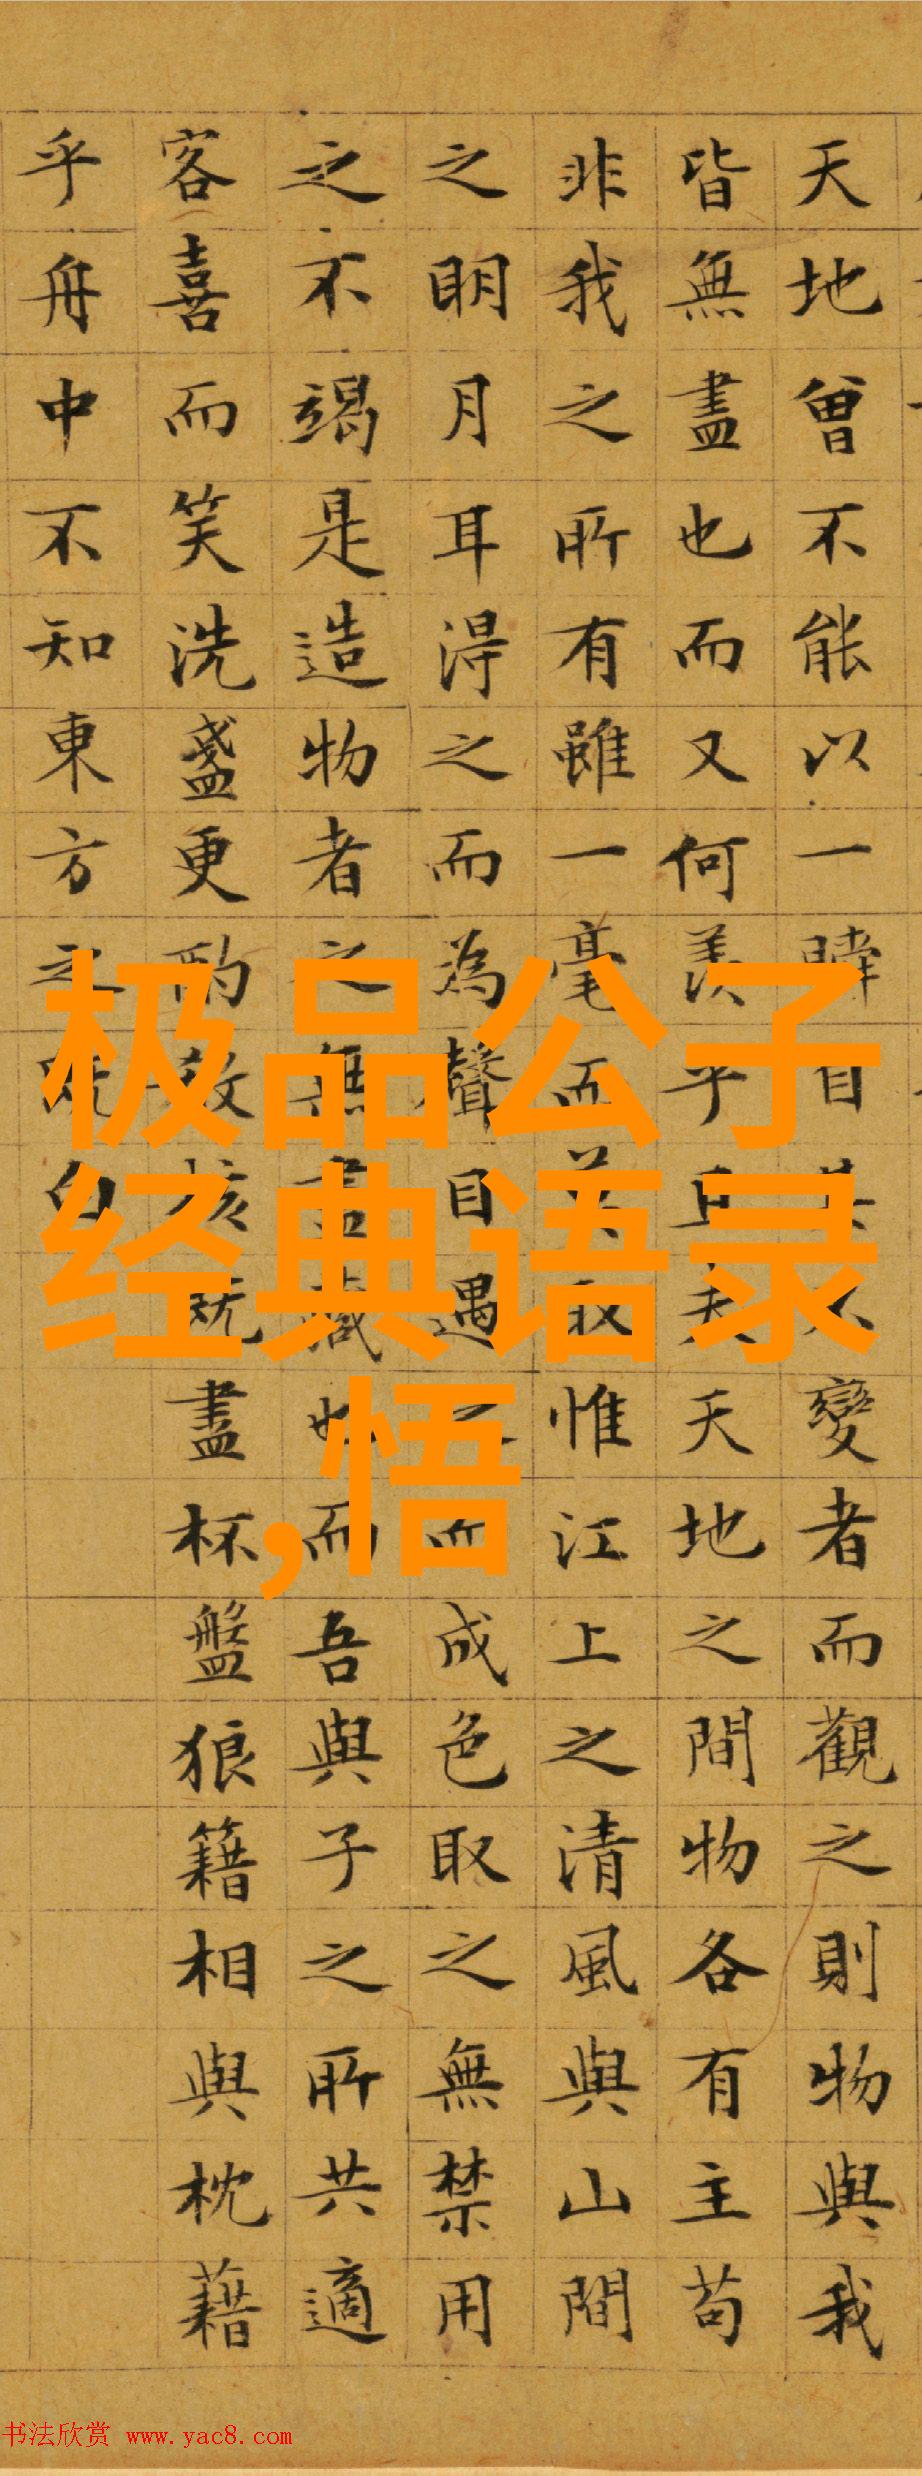 天地曾不能以一瞬自其不變者而觀之則物與我
皆無盡也而又何羨乎且夫天地之間物各有主苟
非我之所有雖一毫而莫取惟江上之清風與山間
之明月耳得之而為聲目遇之而成色取之無禁用
之不竭是造物者之無盡藏也而吾與子之所共適
客喜而笑洗盞更酌核既盡杯盤狼籍相與枕藉
乎舟中不知東方之既白
极品公子
经典语录
,悟
书法欣赏 www.yac8.com